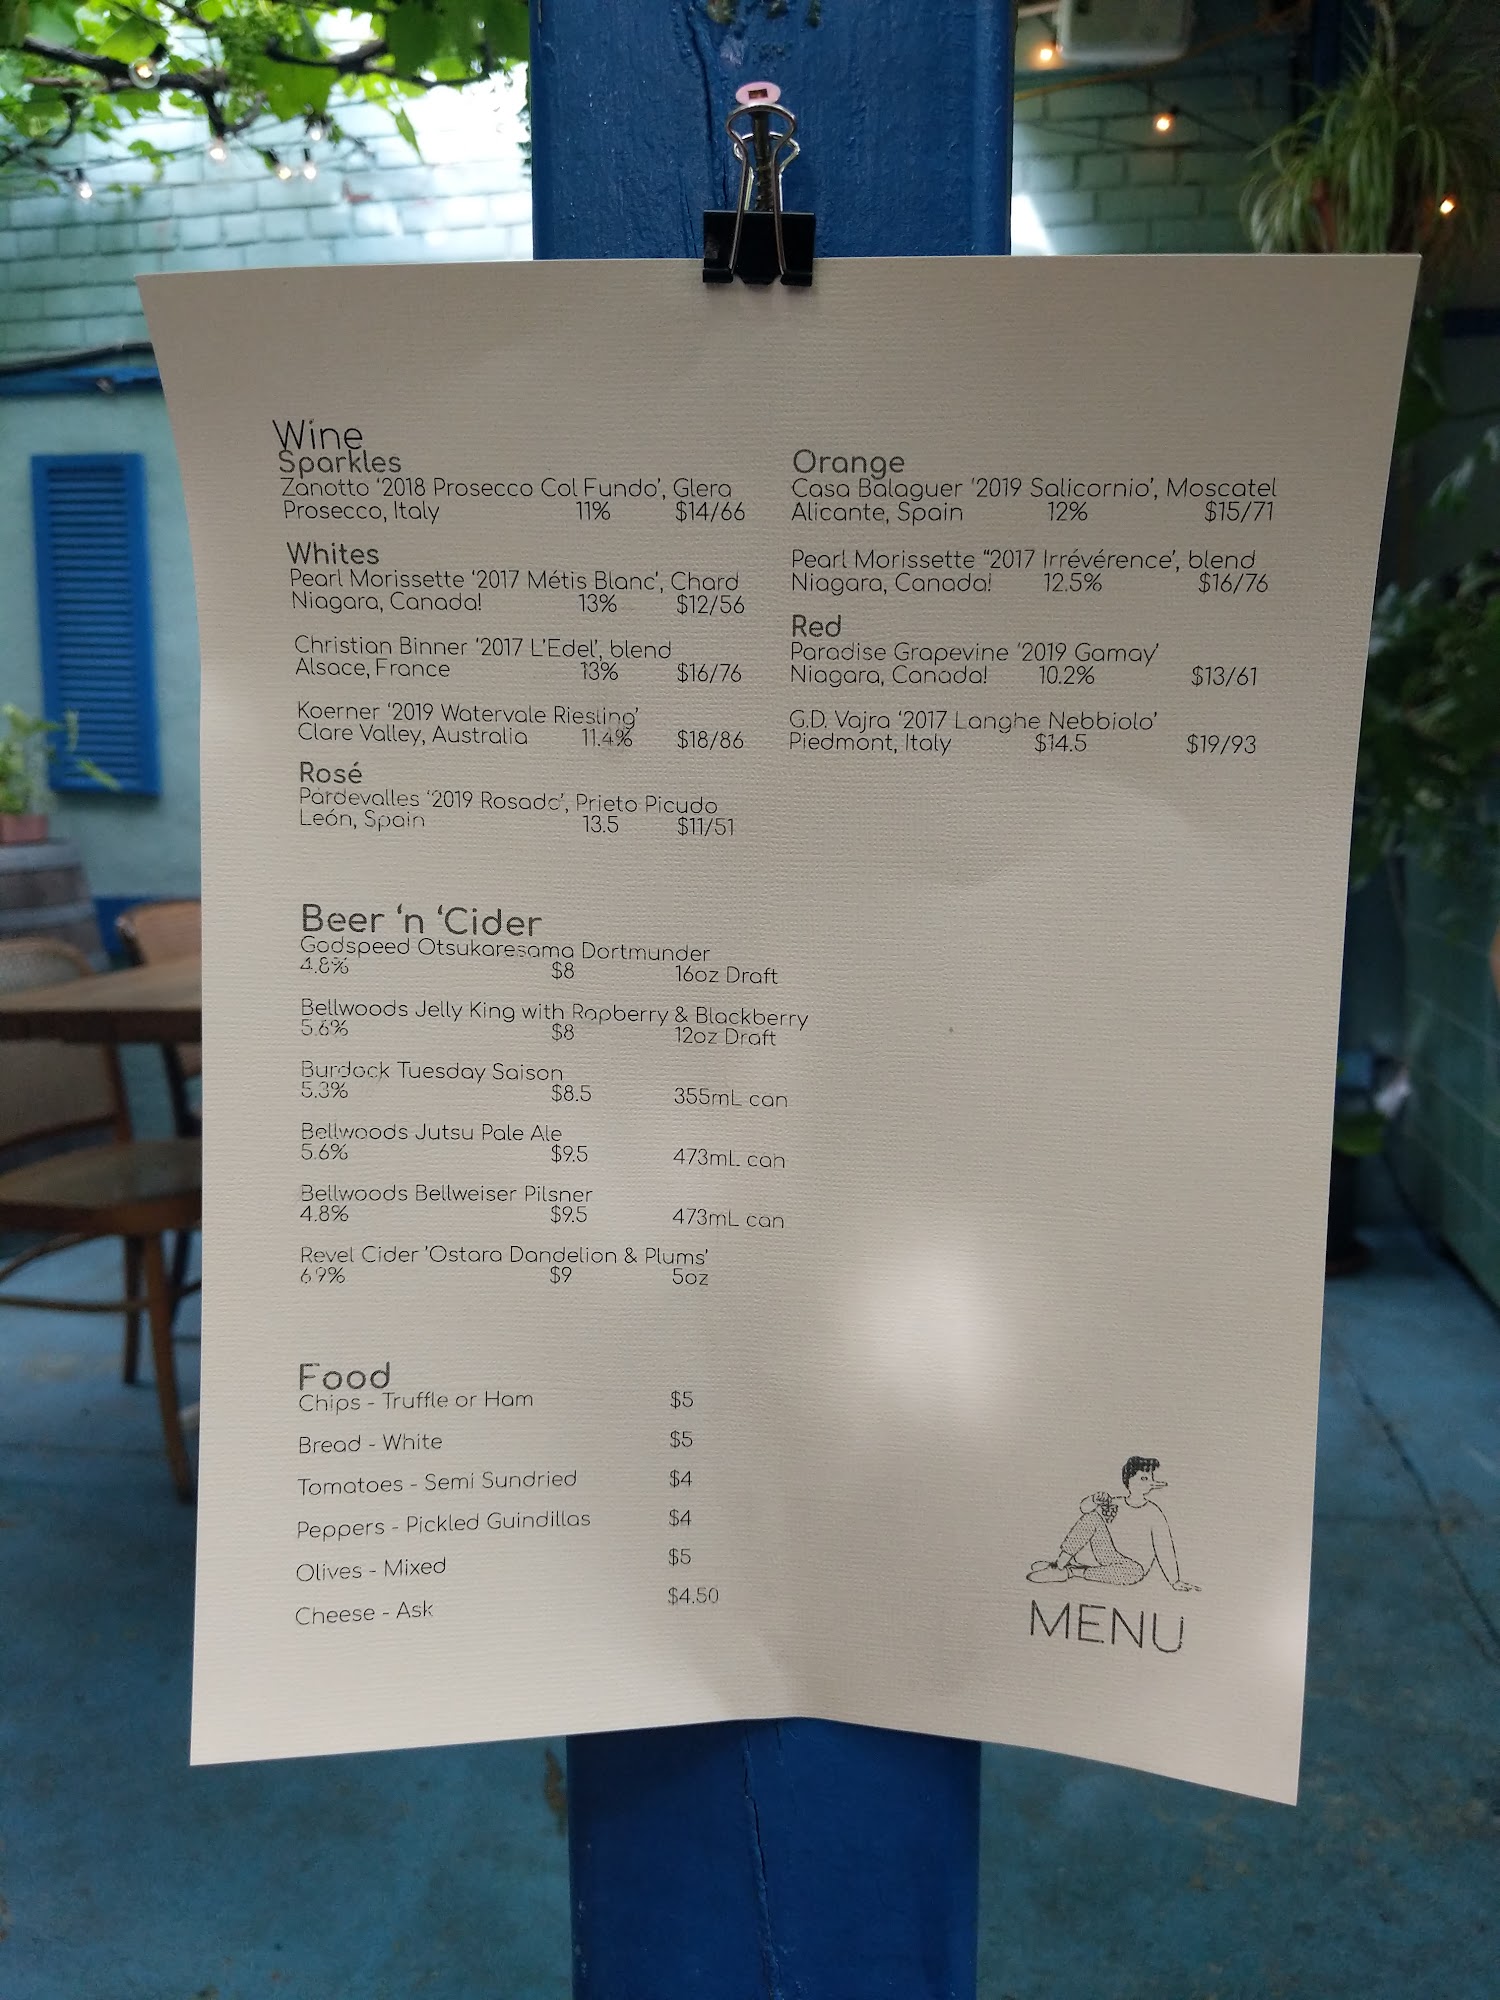 Wine
Sparkles
Zanotto '2018 Prosecco Col Fundo', Glera
Prosecco, Italy 11% $14/66
Whites
Pearl Morissette '2017 Métis Blanc', Chard
Niagara, Canada! 13% $12/56
Christian Binner '2017 L'Edel', blend
Alsace, France 13% $16/76
Koerner '2019 Watervale Riesling'
Clare Valley, Australia 11.4% $18/86
Rosé
Pardevalles '2019 Rosado', Prieto Picudo
León, Spain 13.5 $11/51
Orange
Casa Balaguer '2019 Salicornio', Moscatel
Alicante, Spain 12% $15/71
Pearl Morissette "2017 Irrévérence', blend
Niagara, Canada! 12.5% $16/76
Red
Paradise Grapevine '2019 Gamay'
Niagara, Canada! 10.2% $13/61
G.D. Vajra '2017 Langhe Nebbiolo'
Piedmont, Italy $14.5 $19/93
Beer 'n 'Cider
Godspeed Otsukaresama Dortmunder
4.8% $8 16oz Draft
Bellwoods Jelly King with Rapberry & Blackberry
5.6% $8 12oz Draft
Burdock Tuesday Saison
5.3% $8.5 355mL can
Bellwoods Jutsu Pale Ale
5.6% $9.5 473mL can
Bellwoods Bellweiser Pilsner
4.8% $9.5 473mL can
Revel Cider 'Ostara Dandelion & Plums'
6.9% $9 5oz
Food
Chips - Truffle or Ham $5
Bread - White $5
Tomatoes - Semi Sundried $4
Peppers - Pickled Guindillas $4
Olives - Mixed $5
Cheese - Ask $4.50
MENU